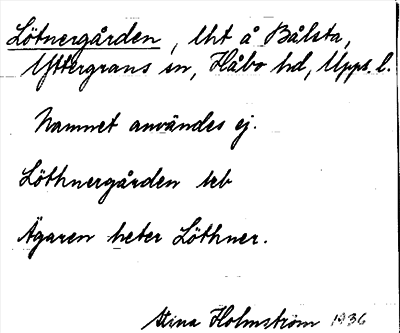 Lötnergården, lht å Bålsta,
Yttergrans sn, Håbo hd, Upps. l.
Namnet användes ej.
Löthnergården krb
Ägaren heter Löthner.
Stina Holmström 1936